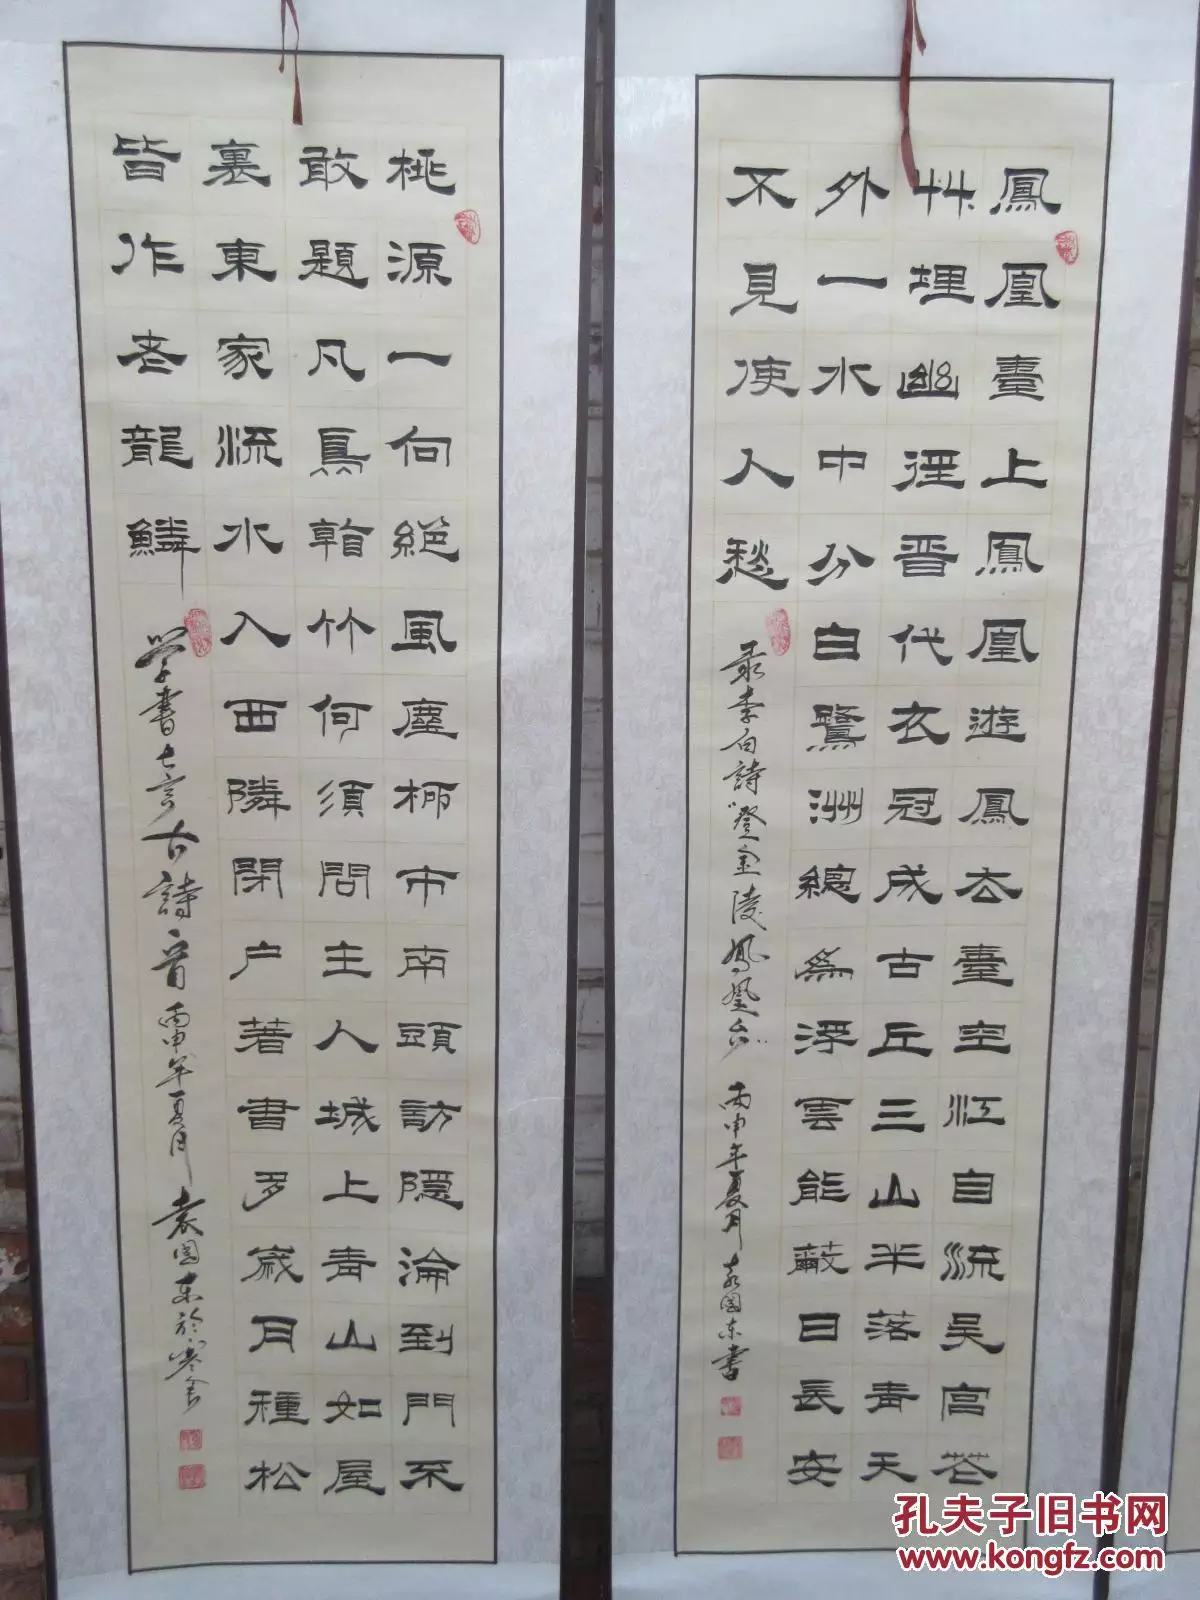 鳳凰臺上鳳凰遊鳳去臺空江自流吳宮花
艸埋幽徑晋代衣冠成古丘三山半落青天
外一水中分白鷺洲總為浮雲能蔽日長安
不見使人愁
录李白詩“登金陵鳳凰台” 丙申年夏月 袁國东書
桃源一向絕風塵柳市南頭訪隱淪到門不
敢題凡鳥看竹何須問主人城上青山如屋
裏東家流水入西隣閉户著書多歲月種松
皆作老龍鱗
学書七言古詩一首 丙申年夏月 袁國东於寒舍
孔夫子旧书网
www.kongfz.com